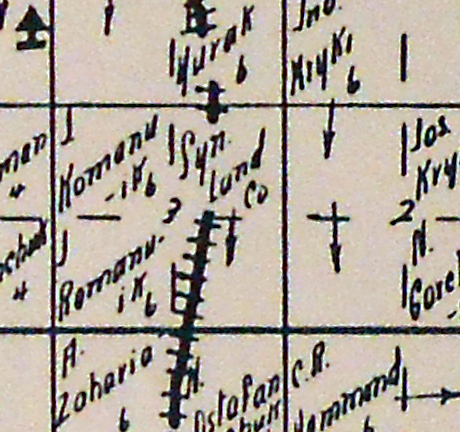 Jno.
Yurak
6
Kryki
6
J
Komanu
-ik 6
Syn.
Land
Co
Jos
Kry
3
2
J
Romanu-
ik 6
N.
Gore
A.
Zaharia
6
N.
Ostafan
C.R.
Hammond
6